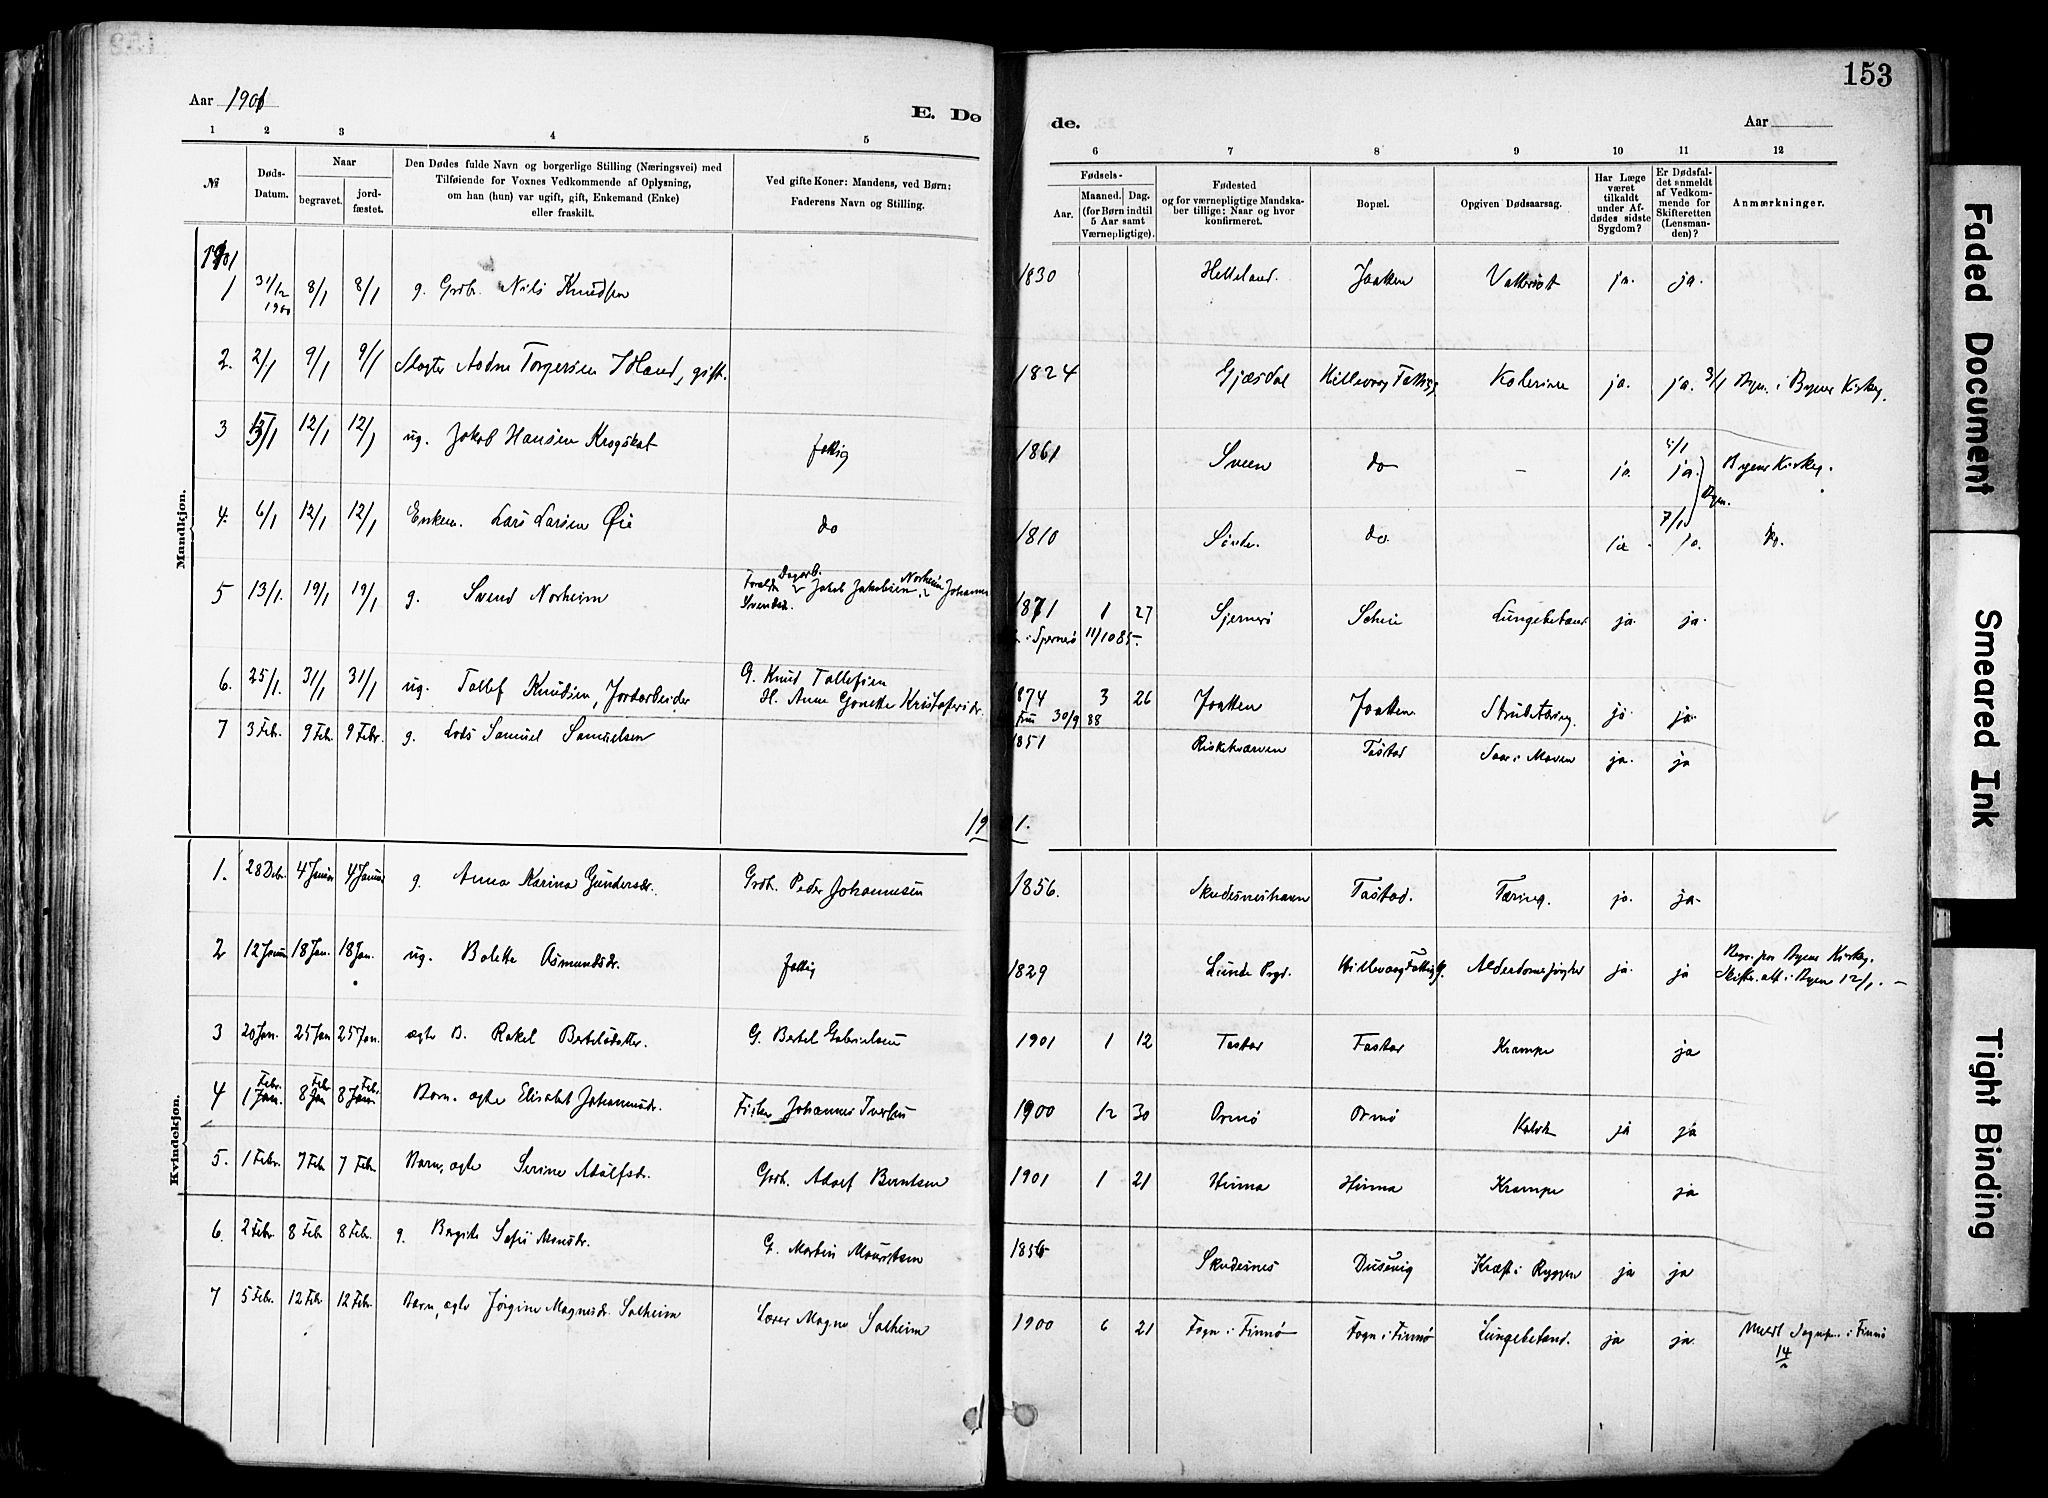 153
Aar 1901
E. Dø
de.
Aar
1 2 3 4 5
6 7 8 9 10 11 12
№
Døds-Datum.
Naar
begravet.
jord-fæstet.
Den Dødes fulde Navn og borgerlige Stilling (Næringsvei) med
Tilføiende for Voxnes Vedkommende af Oplysning,
om han (hun) var ugift, gift, Enkemand (Enke)
eller fraskilt.
Ved gifte Koner: Mandens, ved Børn:
Faderens Navn og Stilling.
Fødsels-
Aar.
Maaned.
Dag.
(for Børn indtil
5 Aar samt
Værnepligtige).
Fødested
og for værnepligtige Mandska-
ber tillige: Naar og hvor
konfirmeret.
Bopæl.
Opgiven Dødsaarsag.
Har Læge
været
tilkaldt
under Af-
dødes sidste
Sygdom?
Er Dødsfal-
det anmeldt
af Vedkom-
mende for
Skifteretten
(Lensman-
den)?
Anmærkninger.
Mandkjøn.
1901
1 31/12 1900 8/1 8/1 g. Grdb. Nils Knudsen 1830 Helleland. Jaatten Vattersot ja. ja.
2. 2/1 9/1 9/1 Slagter Aadne Torgersen Hland, gift. 1824 Gjæsdal Hillevaag Fattigg Kolerine ja. ja. 3/1 Byn. i Byens Kirkeg.
3 12/1 12/1 ug. Jakob Hansen Krogskat fattig 1861 Sveen do - ja. 5/1 ja. Byens Kirkeg.
4. 6/1 12/1 12/1 Enkem. Lars Larsen Øie do 1810 do. ja 7/1 ja. Do.
5 13/1. 19/1 19/1 g. Svend Norheim Foreldr Dagarb. Jakob Jakobsen Norheim Johanne Svendsd. 1871 1 27 Sjernerø Lungebetænd ja. ja.
i Sjernerø 11/10 85.
6. 25/1. 31/1 31/1 ug. Tollef Knudsen, Jordarbeider G. Knud Tollefsen
H. Anne Gonette Kristofersdr. 1874 3 26 Jaatten Jaatten Strubetæring. ja. ja.
30/9 88
7 3 Febr. 9 Feb. 9 Febr. g. Lods Samuel Samuelsen 1851 Tastad Saar i Maven ja. ja
19 1.
Kvindekjøn.
1. 28 Debr. 4 Januar 4 Januar g. Anna Karina Gundersdr. Grdb. Peder Johannesen 1856. Skudesneshavn Tastad. Tæring. ja. ja.
2 12 Januar 18 Jan. 18 Jan. ug. Bolette Asmundsdr. fattig 1829 Lunde Prgd. Hillevaag Fattigg. Alderdomssvaghed ja. ja Begr. paa Byens Kirkeg.
Skifter. alt i Byen 12/1. -
3 20 Jan. 25 Jan 25 Jan. ægte B. Rakel Bertelsdatter. G. Bertel Gabrielsen 1901 1 12 Tastad Tastad Krampe ja
4 1 Febr. 8 Feb 8 Feb. Barn. ægte Elisabet Johannesdr. Fisker Johannes Iversen 1900 12 30 Ormø Ormø ja ja
5. 1 Febr. 7 Feb 7 Feb Barn, ægte Serine Adolfsdr. Grdb. Adolf Berntsen 1901 1 21 Hinna Hinna Krampe ja
6. 2 Febr. 8 Feb 8 Febr. g. Bergite Sofie Monsdr. G. Martin Mauritsen 1856 Skudesnes Dusevig Kræft i Ryggen ja ja
7 5 Febr. 12 Feb 12 Feb. Barn, ægte Jørgine Magnesdr. Solheim Lærer Magne Solheim 1900 6 21 Fogn i Finnø Fogn i Finnø Lungebetænd. ja ja. Meldt Sognepr. i Finnø
14/2
Faded Document
Smeared Ink
Tight Binding